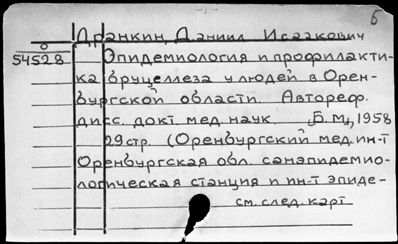 б
Дранкин, Даниил Исаакович
0
54528
Эпидемиология и профилакти-
ка бруцеллеза у людей в Орен-
бургской области. Автореф.
дисс. докт. мед. наук. Б.М., 1958
29 стр. (Оренбургский мед. ин-т
Оренбургская обл. санэпидемио-
логическая станция и ин-т эпиде-
см. след. карт